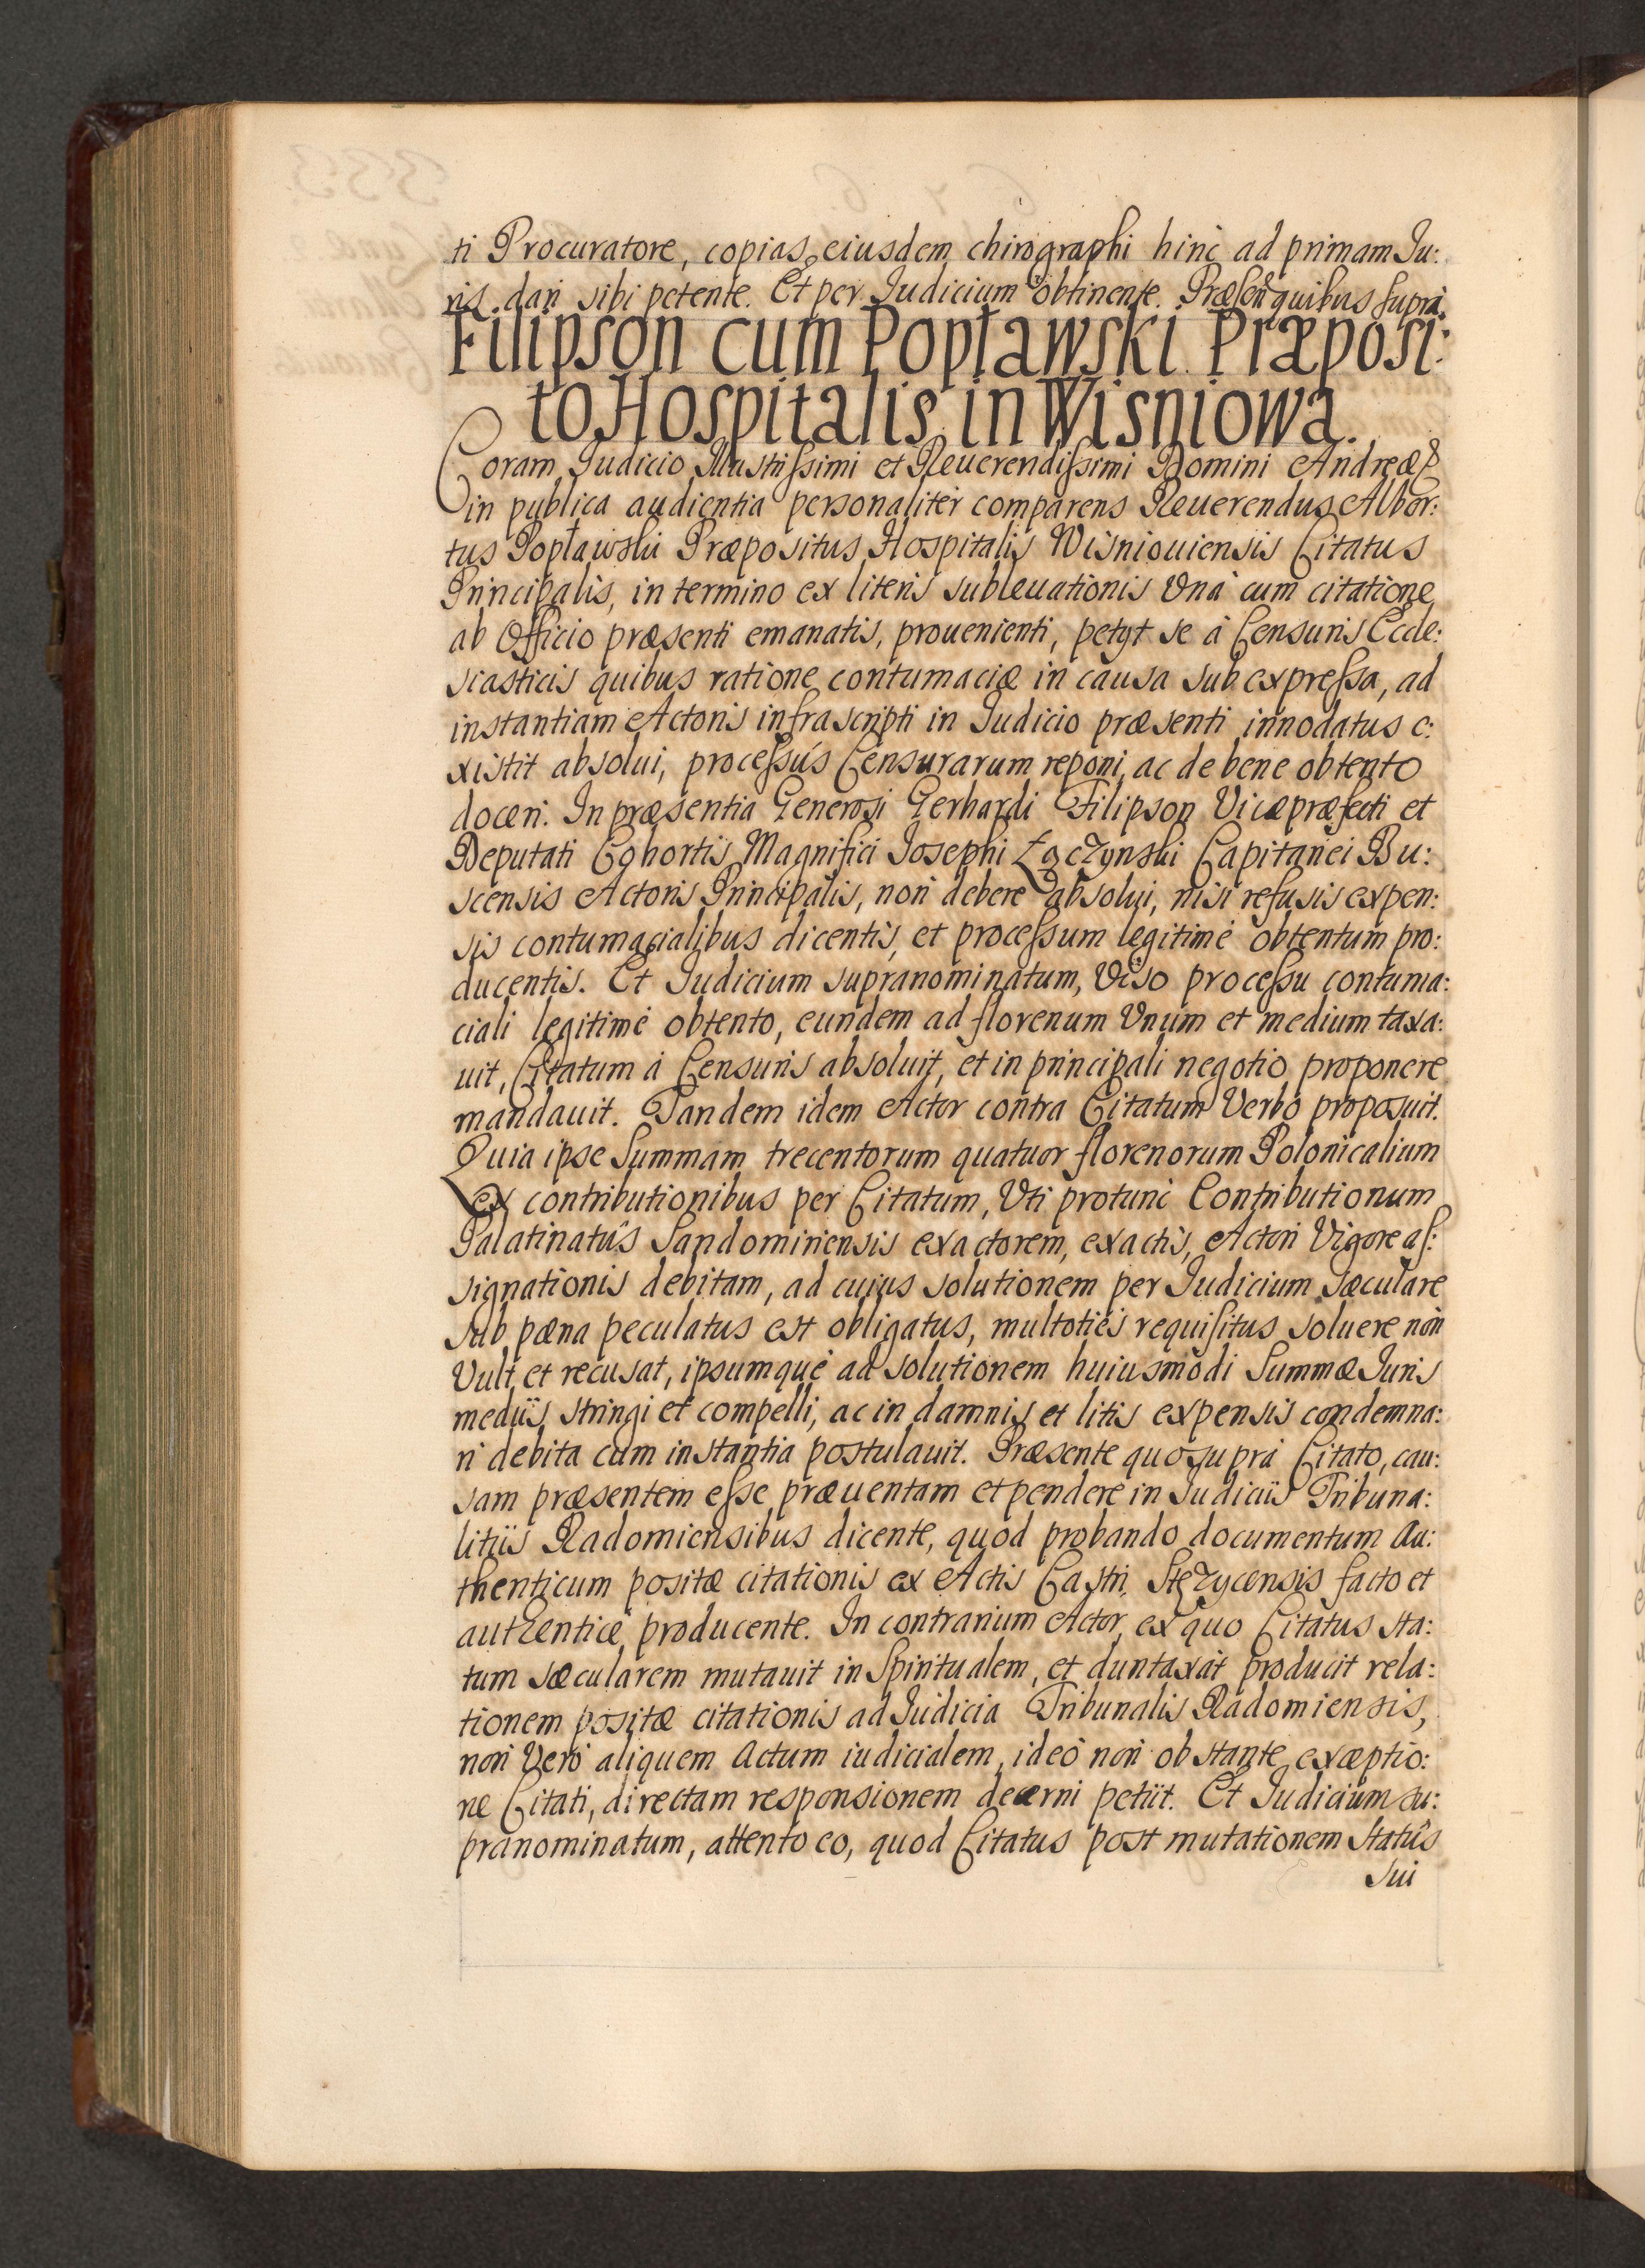 ti Procuratore, copias eiusdem chirographi hinc ad primam Ju:
ris dari sibi petente. Et per Judicium obtinente. Præsen quibus supra.
Filipson cum Popławski Præposi:
to Hospitalis in Wisniowa.
Coram Judicio Illustrissimi et Reuerendissimi Domini Andreæ &
in publica audientia personaliter comparens Reuerendus Alber:
tus Popławski Præpositus Hospitalis Wisniouiensis Citatus
Principalis, in termino ex literis subleuationis Vnà cum citatione
ab Officio præsenti emanatis, prouenienti, petyt se à Censuris Eccle:
siasticis quibus ratione contumaciæ in causa sub expressa, ad
instantiam Actoris infrascripti in Judicio præsenti innodatus e:
xistit absolui, processús Censurarum reponi, ac de bene obtento
doceri. In præsentia Generosi Gerhardi Filipson Vicæpræfecti et
Deputati Cohortis Magnifici Josephi Łączynski Capitanei Bu:
scensis Actoris Principalis, non debere absolui, nisi refusis expen:
sis contumacialibus dicentis, et processum legitimè obtentum pro:
ducentis. Et Judicium supranominatum, Viso processu contuma:
ciali legitimè obtento, eundem ad florenum Vnum et medium taxa:
uit, Citatum à Censuris absoluit, et in principali negotio proponere
mandauit. Tandem idem Actor contra Citatum Verbo proposuit.
Quia ipse Summam trecentorum quatuor florenorum Polonicalium
ex contributionibus per Citatum, Vti protunc Contributionum
Palatinatûs Sandomiriensis exactorem, exactis, Actori Vigore as:
signationis debitam, ad cuius solutionem per Judicium sæculare
sub pæna peculatus est obligatus, multotiés requisitus soluere non
Vult et recusat, ipsumquè ad solutionem huiusmodi Summæ Juris
medijs stringi et compelli, ac in damnis et litis expensis condemna:
ri debita cum instantia postulauit. Præsente quo supra Citato, cau:
sam præsentem esse præuentam et pendere in Judiciis Tribuna:
litijs Radomiensibus dicente, quod probando documentum Au:
thenticum positæ citationis ex Actis Castri Stęzycensis facto et
authenticè producente. In contrarium Actor, ex quo Citatus sta:
tum sæcularem mutauit in Spiritualem, et duntaxàt producit rela:
tionem positæ citationis ad Judicia Tribunalis Radomiensis,
non Verò aliquem Actum iudicialem, ideò non obstante exæptio:
ne Citati, directam responsionem decerni petiit. Et Judicium su:
pranominatum, attento eo, quod Citatus post mutationem statûs
sui